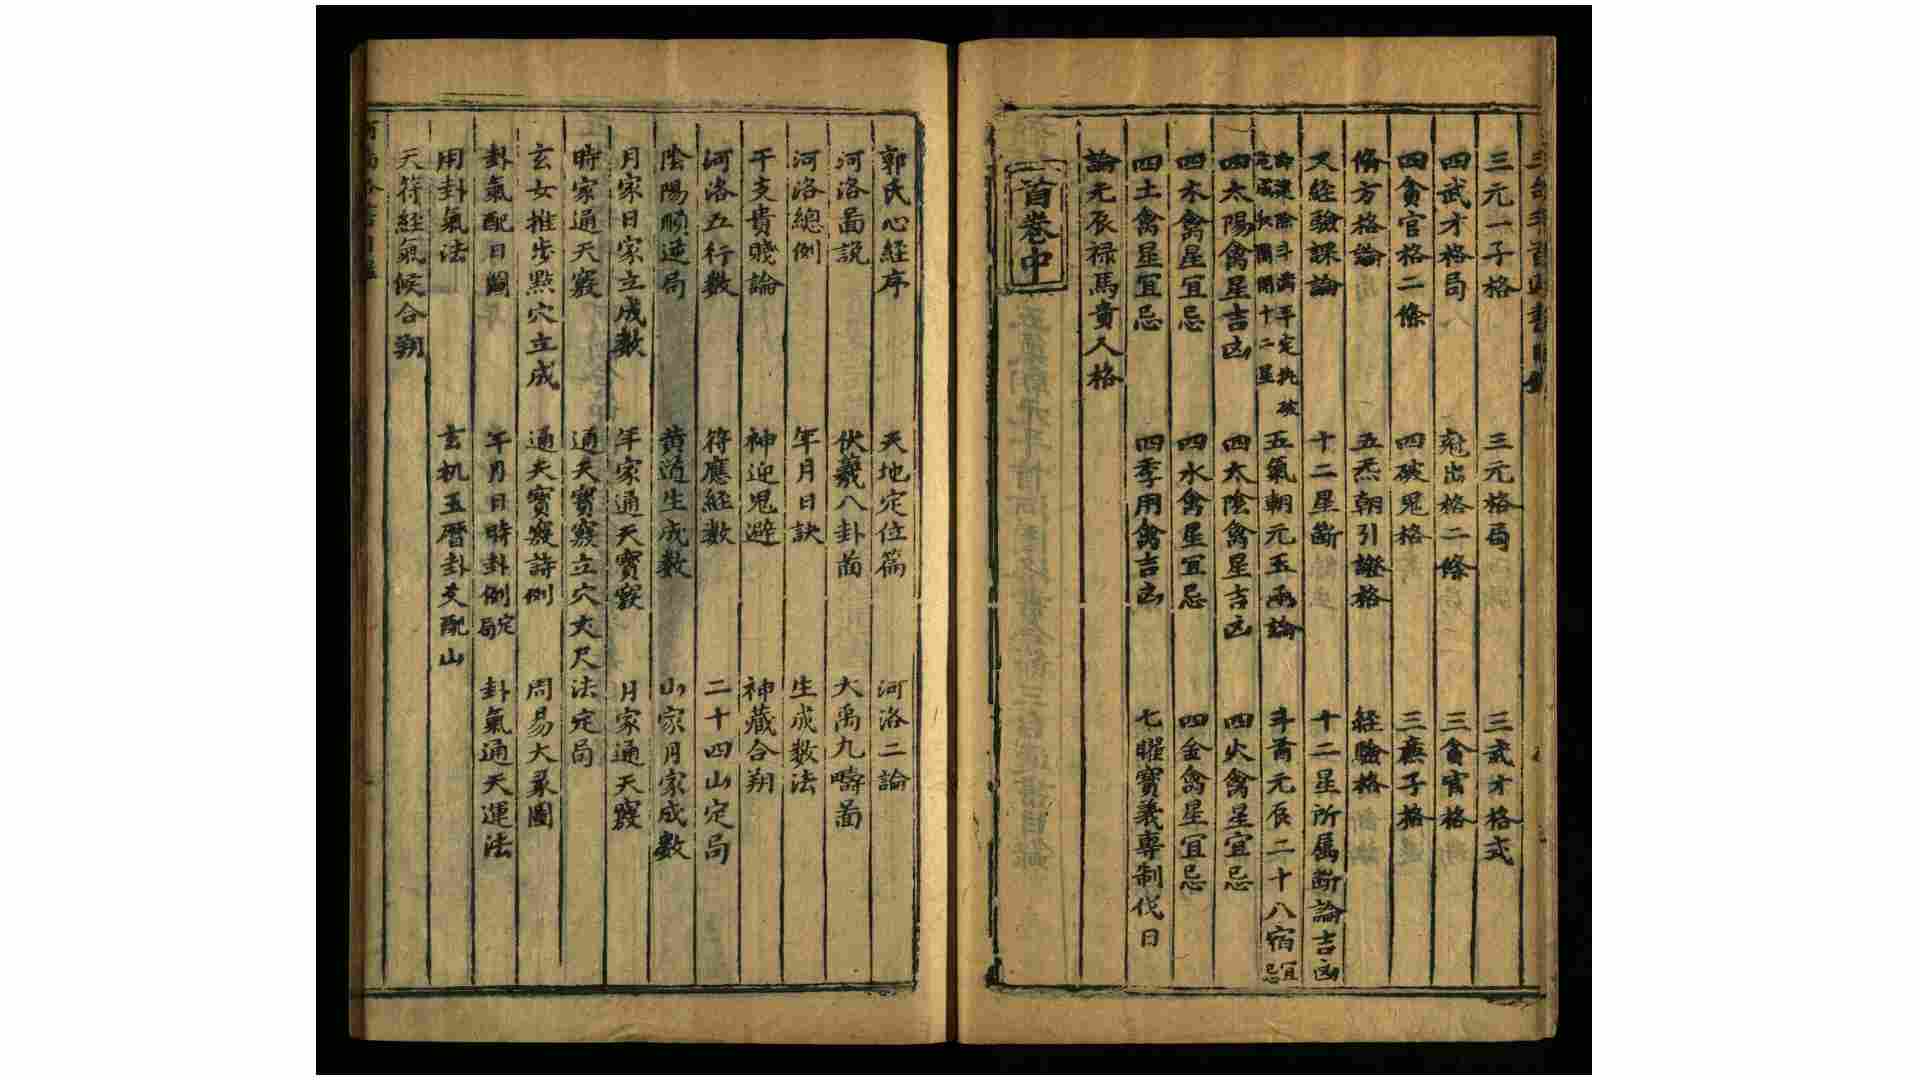 三元一子格 三元格局 三武才格式
四武才格局 冠出格二條 三貪官格
四貪官格二條 四破鬼格 三廉子格
脩方格論 五炁朝引證格 経驗格
又経驗課論 十二星斷 十二星所属斷論吉凶
建滿平定執破危成収開閉十二星 五氣朝元玉函論 斗首元辰二十八宿宜忌
四太陽禽星吉凶 四太陰禽星吉凶 四火禽星宜忌
四木禽星宜忌 四水禽星宜忌 四金禽星宜忌
四土禽星宜忌 四季用禽吉凶 七曜寶義專制伐日
論元辰禄馬貴人格
首卷中
郭氏心経序 天地定位篇 河洛二論
河洛啚説 伏羲八卦啚 大禹九疇啚
河洛總例 年月日訣 生成数法
干支貴賤論 神迎鬼避 神藏合朔
河洛五行数 符應経数 二十四山定局
陰陽順逆局 黄道生成数 山家月家成数
月家日家立成数 年家通天寶竅 月家通天竅
時家通天竅 通天寶竅立穴丈尺法定局
玄女推步點穴立成 通天寶竅詩例 周易大象圖
卦氣配日圖 年月日時卦例定局 卦氣通天運法
用卦氣法 玄机玉暦卦爻配山
天符経氣候合朔